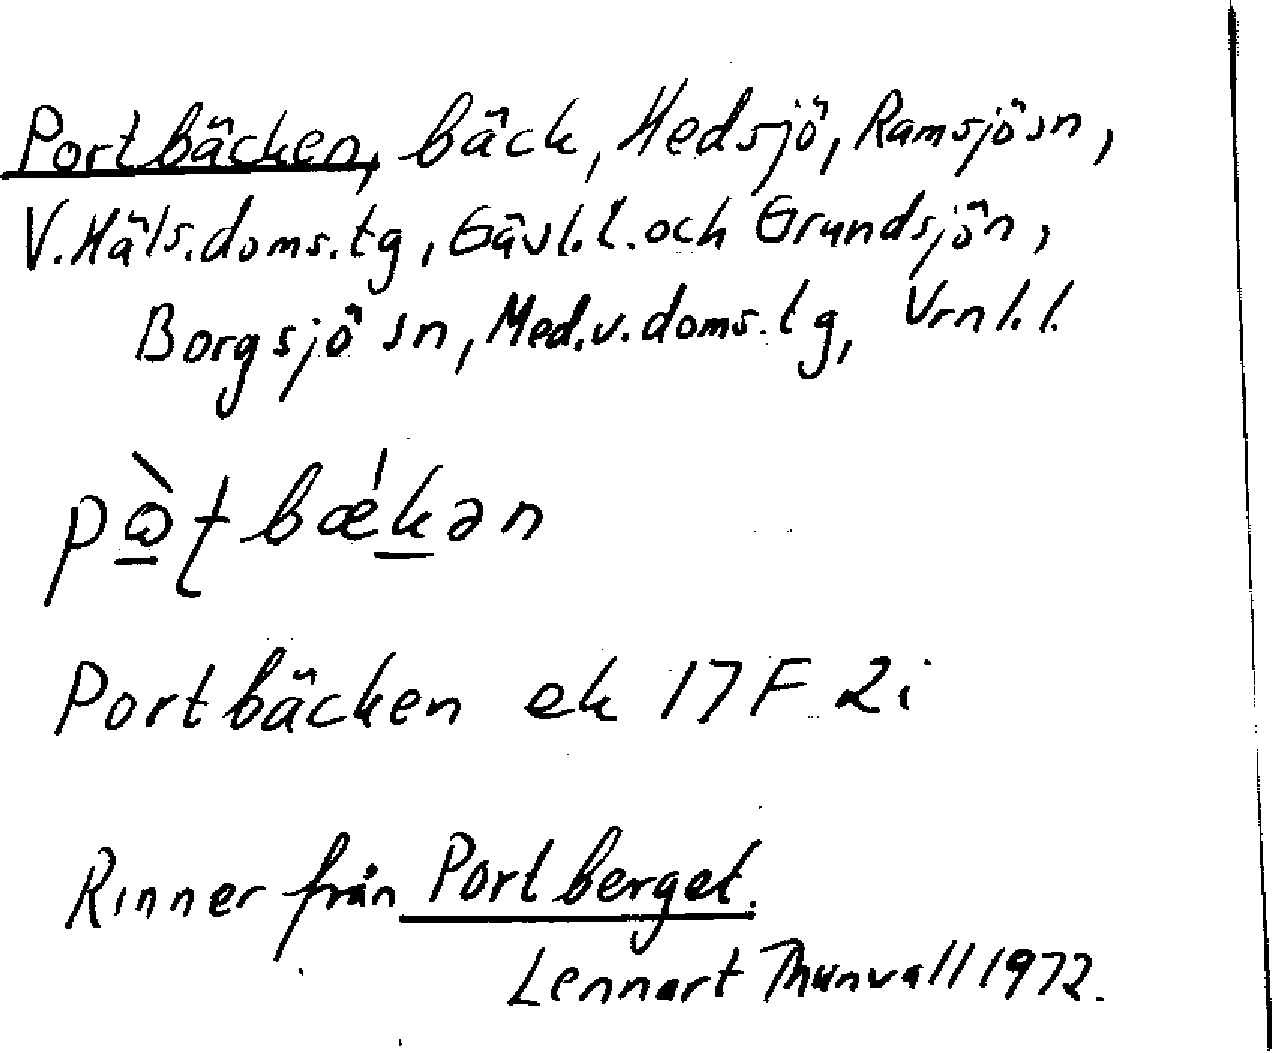 Portbäcken, bäck, Hedsjö, Ramsjö sn,
V. Häls. doms. tg, Gävl. l. och Grundsjön,
Borgsjö sn, Med. v. doms. tg, Vrnl. l.
pὼ̱ʈbǽḵən
Portbäcken ek 17F 2i
Rinner från Portberget.
Lennart Thunvall 1972.